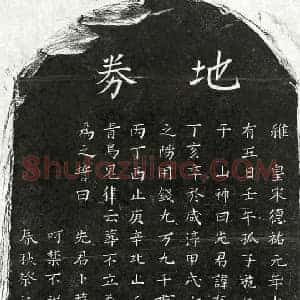 地券
維皇宋德祐元年
有五日壬午孤子
于山神曰先君諱
丁亥卒於咸淳甲
之陽用錢九万九千
丙丁西止庚辛北止
青烏鬼律云葬不立
為之辭曰 先君卜
呵禁不祥
Shufaziliao.com